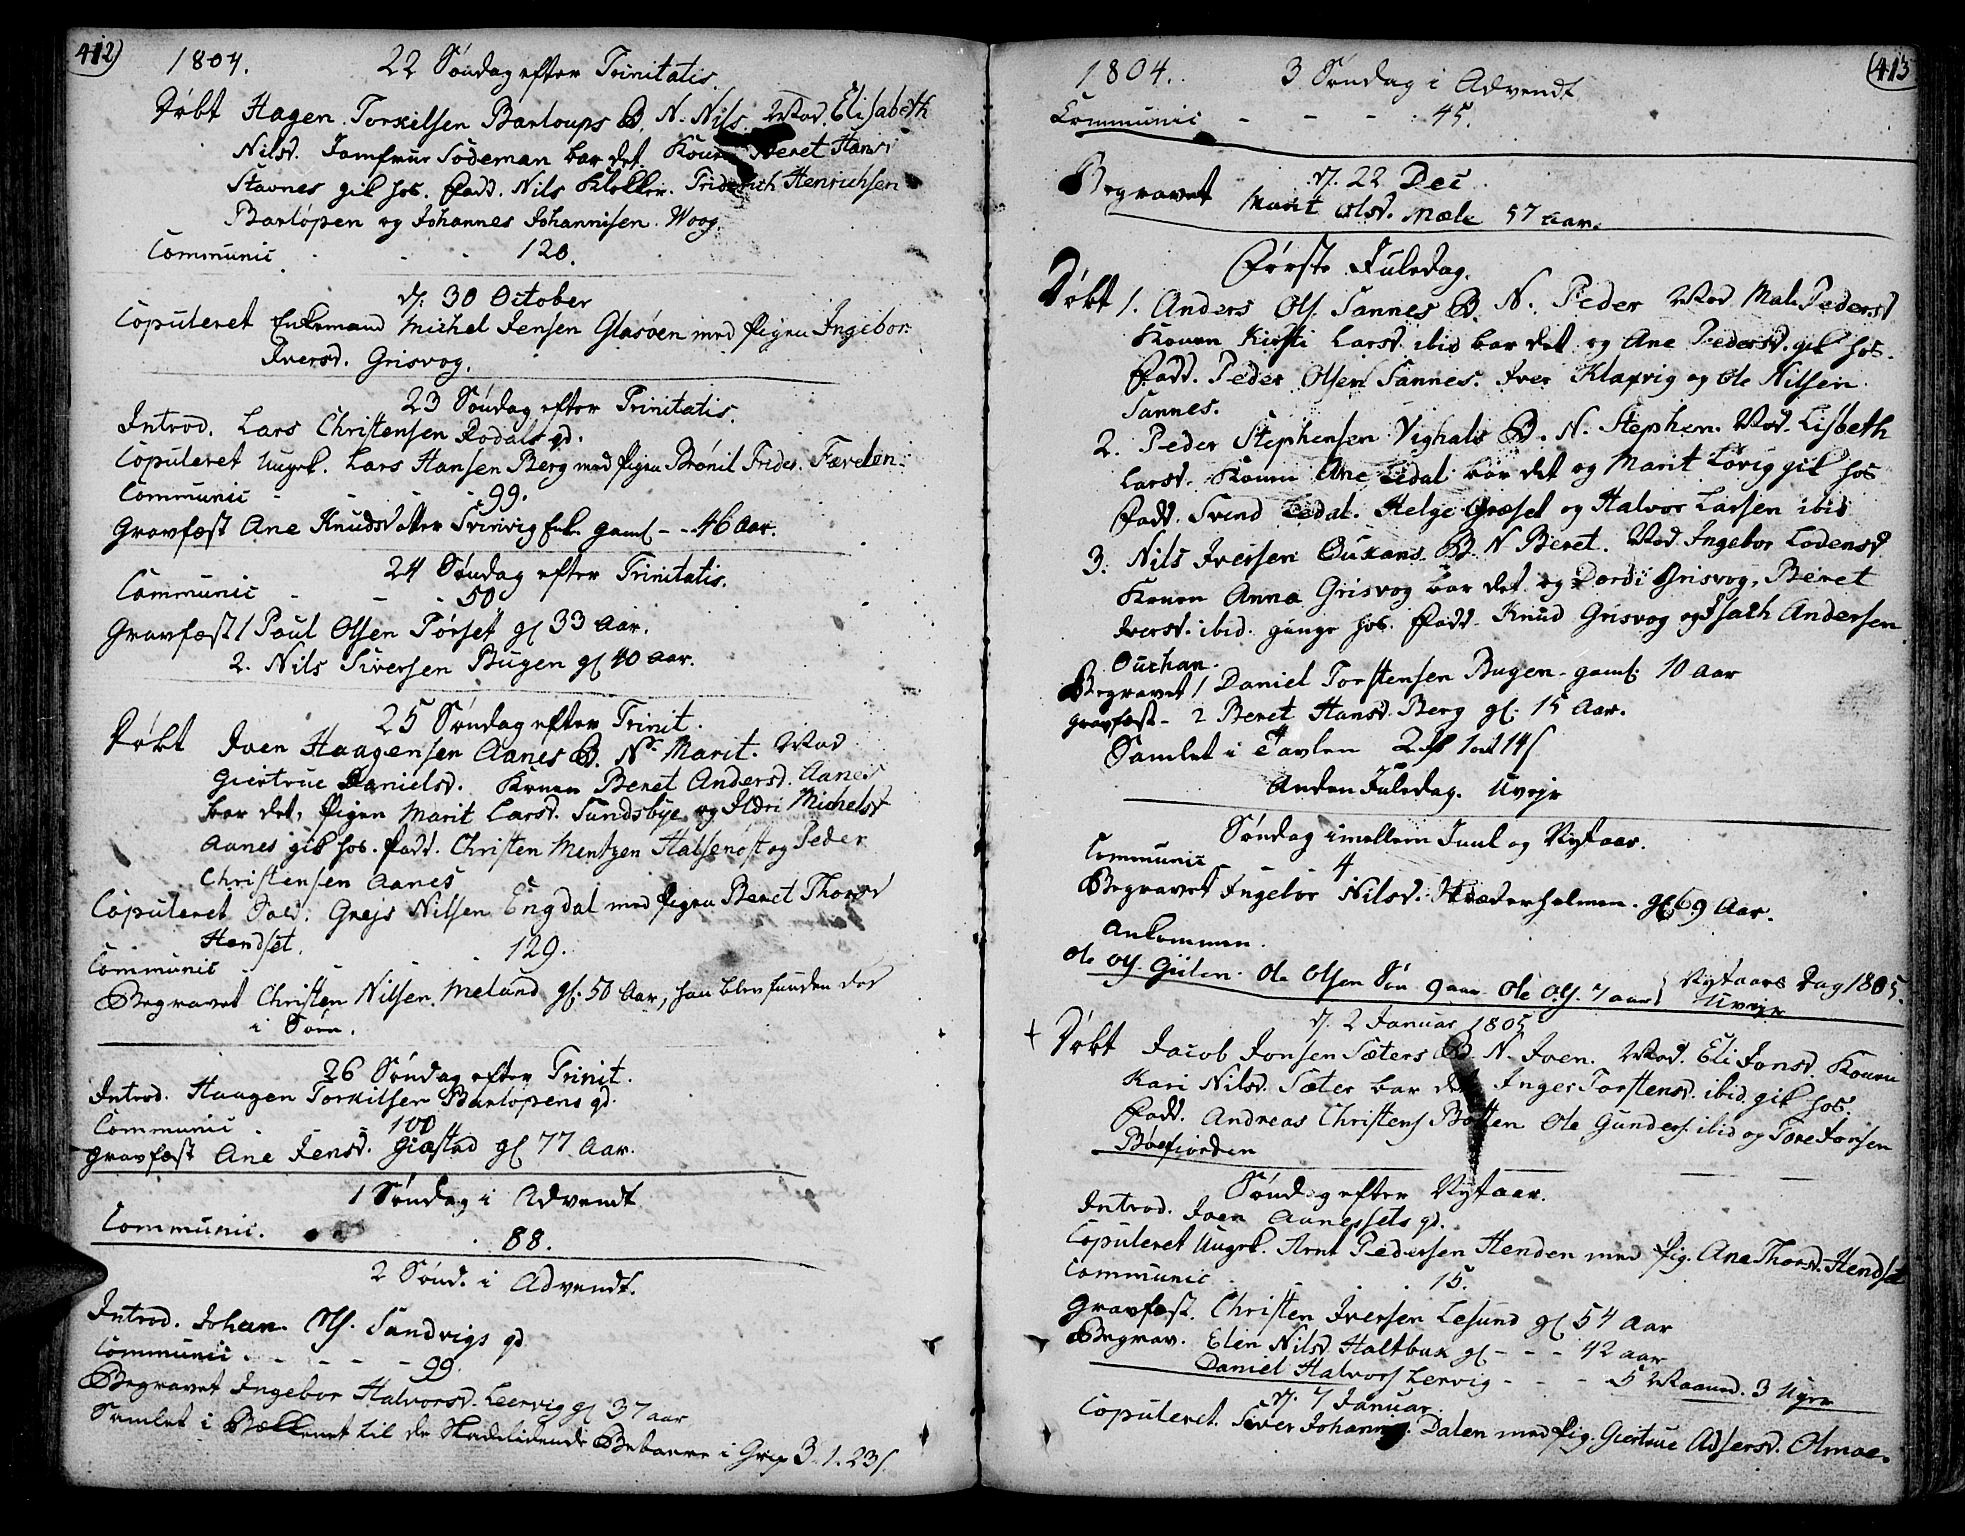 412)
1804.
22 Søndag efter Trinitatis.
Døbt Hagen Torkelsen Barloups B. N. Nils. Mod. Elisabeth
Nilsd. Jomfrue Sodeman bar det. Konen Beret Hansd
Stavnes gik hos. Fadd. Nils Klokker. Friderich Henrichsen
Barlopen og Johannes Johannisen Woog.
Communic. - - 120.
d. 30 October
Copuleret Enkemand Michel Jensen Glasøen med Pigen Ingebor
Iversd. Grisvog.
23 Søndag efter Trinitatis.
Introd. Lars Christensen Rodals qd.
Copuleret Ungk. Lars Hansen Berg med Pigen Brønil Frider. Færelen.
Communic - - - 99.
Gravfæst Ane Knudsdatter Svinvig Enk. gaml - - 46 Aar.
24 Søndag efter Trinitatis.
Communic - - 50
Gravfæst 1 Paul Olsen Torset gl 33 Aar.
2. Nils Siversen Bugen gl 40 Aar.
25 Søndag efter Trinit.
Døbt Joen Haagensen Aanes B. N. Marit. Mod
Giertrue Danielsd. Konen Beret Andersd. Aanes
bar det, Pigen Marit Larsd. Sundsbye og Ildri Michelsd
Aanes gik hos. Fadd. Christen Mentzen Halsenøst og Peder
Christensen Aanes
Copuleret Sold. Grejs Nilsen Engdal med Pigen Beret Thorsd
Hendset.
Communic - - - 129.
Begravet Christen Nilsen Meland gl. 50 Aar, han blev funden død
i Søen.
26 Søndag efter Trinit.
Introd. Haagen Torkilsen Barlopens qd.
Communic. - 100
Gravfæst Ane Jensd. Giæstad gl 77 Aar.
1 Søndag i Advendt
Communic. - - 88.
2 Sønd. i Advendt.
Introd. Johan Ols. Sandvigs qd
Communic - - - - - 99.
Begravet Ingebor Halvorsd. Leervig gl 37 aar
Samlet i Bækkenet til de Skadelidende Beboere i Grip 3. 1. 23 s.
413
1804.
3 Søndag i Advendt
Communic - - - 45.
d. 22 Dec
Begravet Marit Olsd. Mæle 57 Aar.
Første Juledag.
Døbt 1. Anders Ols. Sannes B. N. Peder Mod Mali Pedersd
Konen Kirsti Larsd. ibid bar det og Ane Pedersd. gik hos.
Fadd. Peder Olsen Sannes. Iver Klaxvig og Ole Nilsen
Sannes.
2. Peder Stephensen Vighals B. N. Stephen. Mod. Lisbeth
Larsd. Konen Ane Ledal bar det og Marit Lovig gik hos
Fadd. Svend Ledal. Helge Græset og Halvor Larsen ibid
3. Nils Iversen Ouxans B. N Beret. Mod Ingebor Lodensd
Konen Anna Grisvog bar det og Dordi Grisvog, Beret
Iversd. ibid. ginge hos. Fadd. Knud Grisvog og Isach Andersen
Ouxhan.
Begravet 1 Daniel Torstensen Bugen gaml. 10 Aar
Gravfæst - 2 Beret Hansd. Berg gl. 15 Aar.
Samlet i Tavlen 2 1 ort 14 s
Anden Juledag. Uvejr
Søndag imellem Juul og Nytaar.
Communic - - 4
Begravet Ingebor Nilsd. Stræderholmen. gl 69 Aar.
Ankommen.
Ole Ols. Gulen. Ole Olsen Søn 9 aar Ole Ols. 7 aar
Nytaars Dag 1805.
Uvejr
d. 2 Januar 1805
+ Døbt Jacob Jonsen Sæters B. N. Joen. Mod. Eli Jonsd. Konen
Kari Nilsd. Sæter bar det Inger Torstensd. ibid. gik hos.
Fadd. Andreas Christens Botten Ole Gunders. ibid og Tore Jonsen
Bøefiorden
Søndag efter Nytaar.
Introd. Joen Aanessets qd.
Copuleret Ungk. Arnt Pedersen Henden med Pig. Ane Thorsd. Hendset
Communic - - - 15.
Gravfæst. Christen Iversen Lesund gl 54 Aar
Begrav. Elen Nilsd. Haltbak gl - - - 42 aar
Daniel Halvors Lervig - - - 5 Maaned. 3 Uger
d. 7 Januar
Copuleret. Siver Johannis. Dalen med Pig. Giertrue Adsersd. Olmoe.